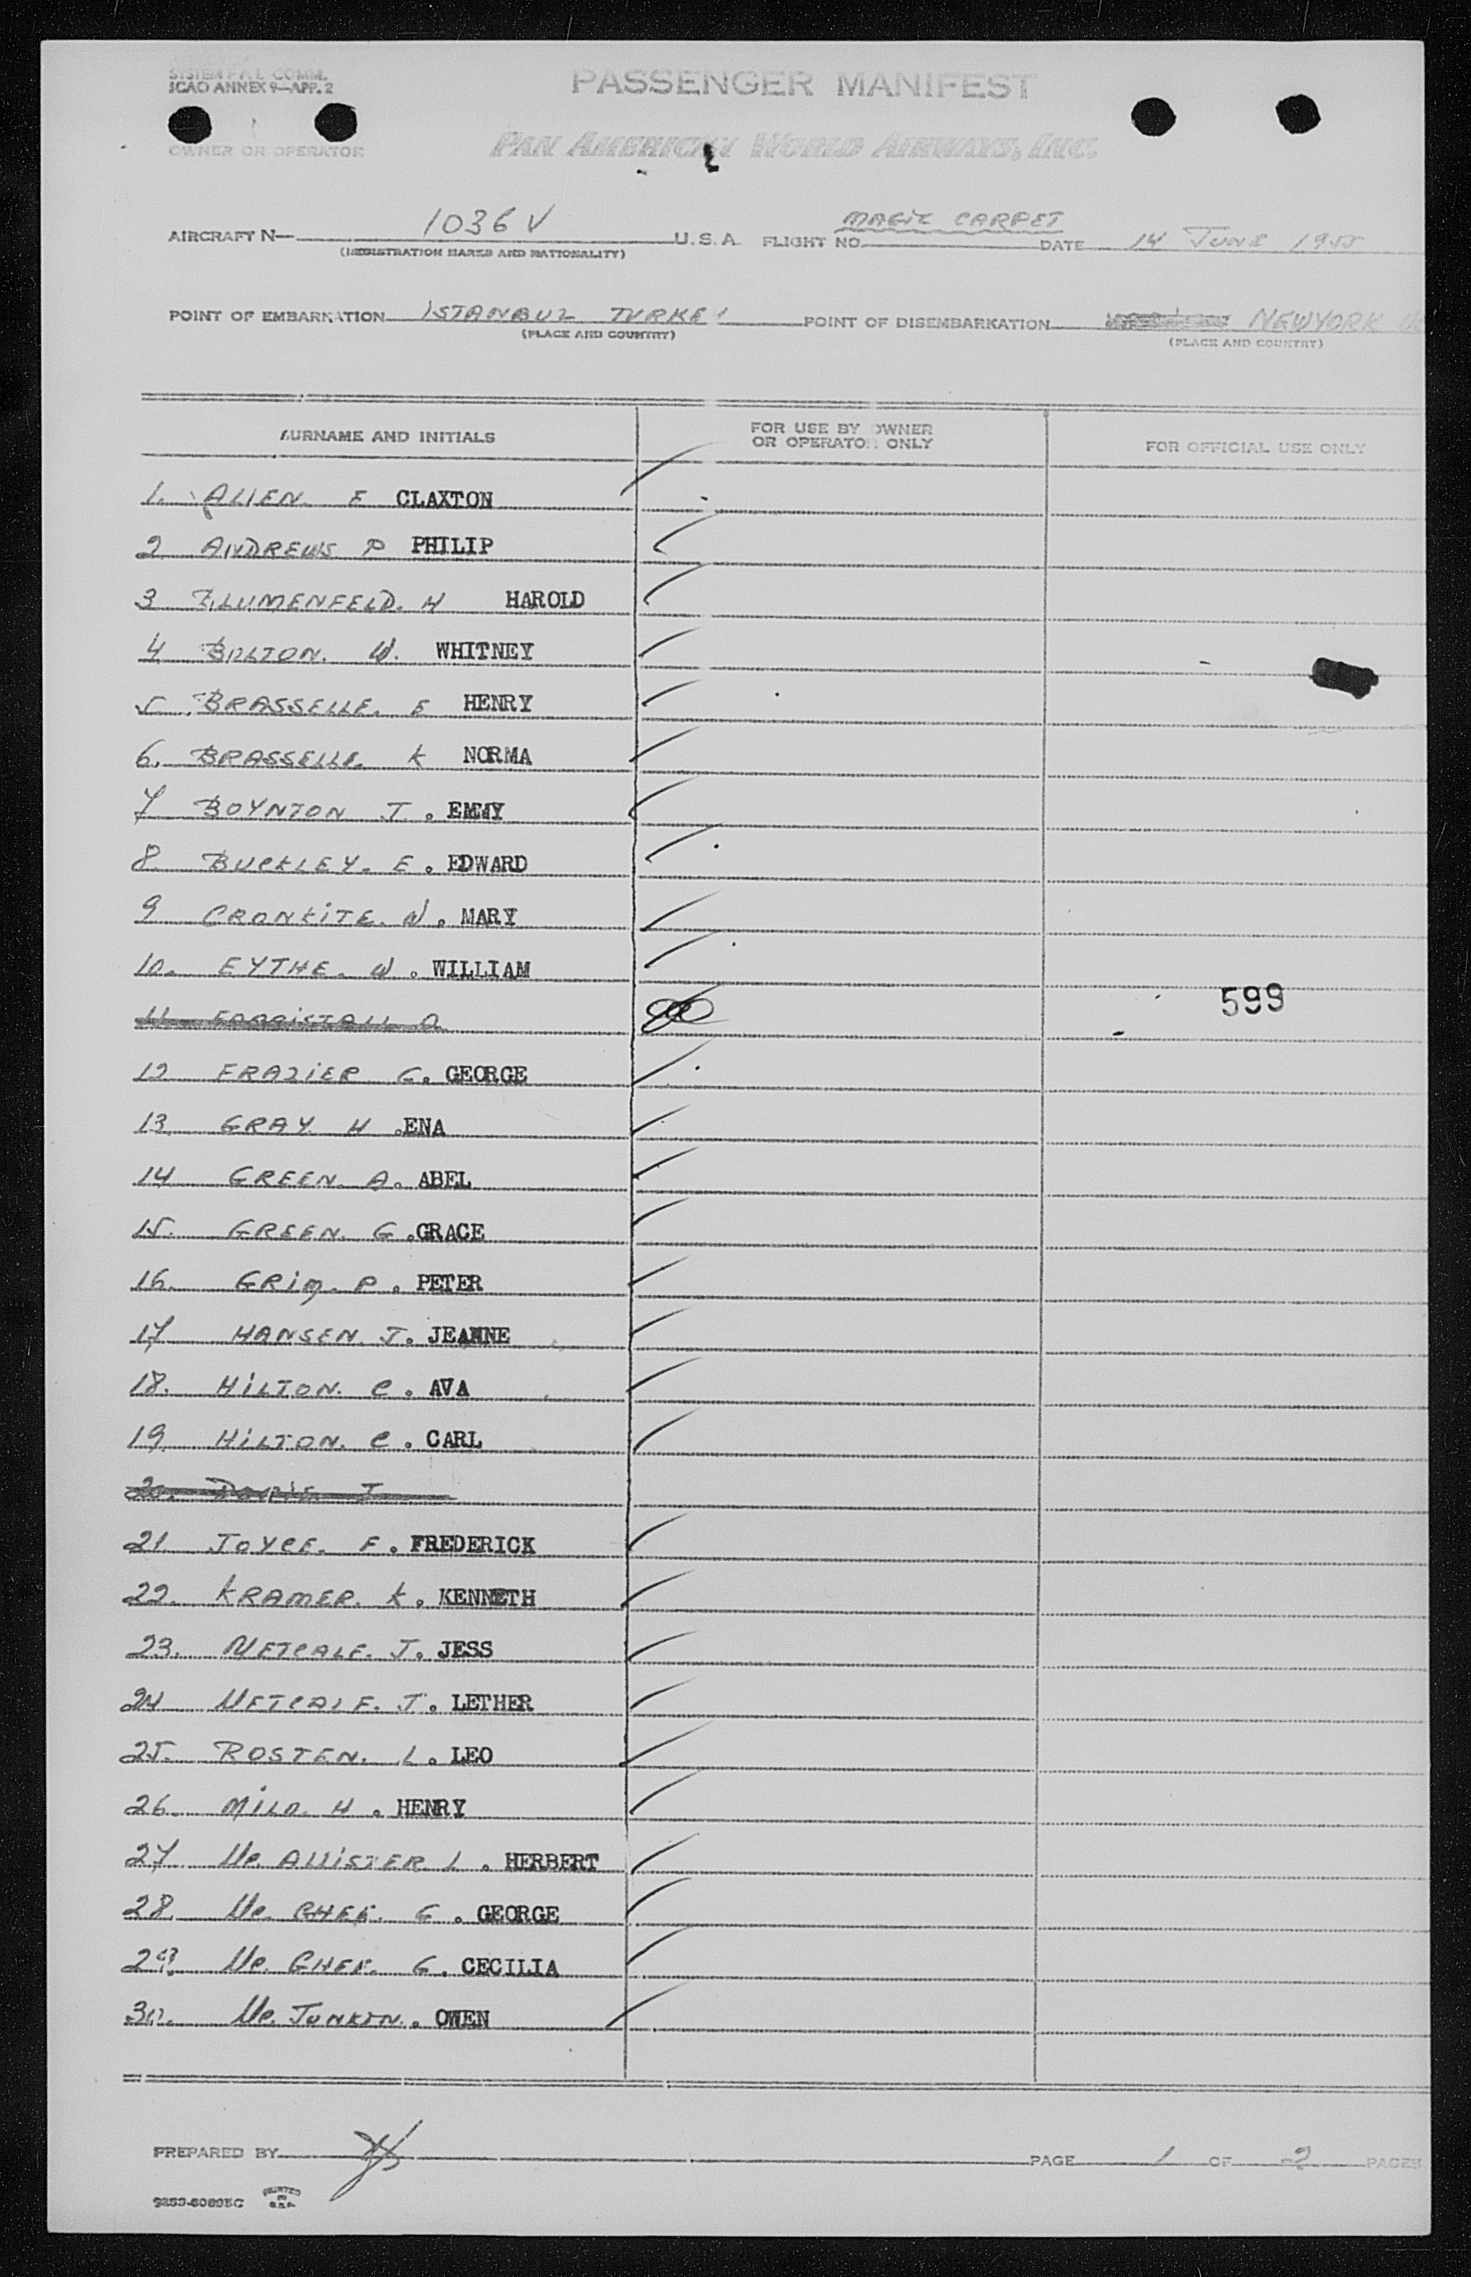 SYSTEM P.A.L. COMM.
ICAO ANNEX 9—APP. 2
PASSENGER MANIFEST
OWNER OR OPERATOR
PAN AMERICAN WORLD AIRWAYS, INC.
AIRCRAFT N— 1036 V U. S. A. FLIGHT NO. MAGIC CARPET DATE 14 JUNE 1955
(REGISTRATION MARKS AND NATIONALITY)
POINT OF EMBARKATION ISTANBUL TURKEY POINT OF DISEMBARKATION NEWYORK
(PLACE AND COUNTRY) (PLACE AND COUNTRY)
SURNAME AND INITIALS
FOR USE BY OWNER
OR OPERATOR ONLY
FOR OFFICIAL USE ONLY
1. ALLEN. E CLAXTON
2 ANDREWS P PHILIP
3 BLUMENFELD. H HAROLD
4 BOLTON. W. WHITNEY
5 BRASSELLE. E HENRY
6. BRASSELLE. K NORMA
7 BOYNTON J. EMMY
8. BUCKLEY. E. EDWARD
9 CRONKITE. W. MARY
10. EYTHE. W. WILLIAM
11. FORRISTALL O
599
12 FRAZIER G. GEORGE
13. GRAY. H .ENA
14 GREEN. A. ABEL
15. GREEN. G .GRACE
16. GRIM. P. PETER
17 HANSEN. J. JEANNE
18. HILTON. C. AVA
19. HILTON. C. CARL
20. J
21 JOYCE. F. FREDERICK
22. KRAMER. K. KENNETH
23. METCALF. J. JESS
24 METCALF. J. LETHER
25. ROSTEN. L. LEO
26. MILO. H. HENRY
27 Mc. ALLISTER L. HERBERT
28. Mc. GHEE. G. GEORGE
29. Mc. GHEE. G. CECILIA
30. Mc. JUNKIN. OWEN
PREPARED BY
PAGE 1 OF 2 PAGES
PRINTED
IN
U.S.A.